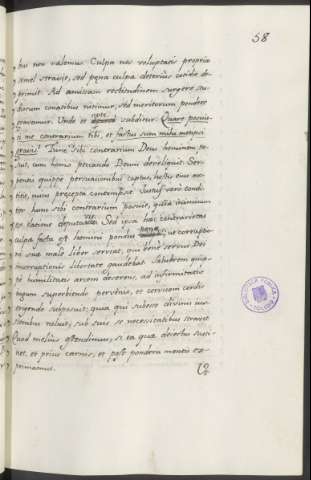 58
bus non valemus. Culpa nos voluptatis propriæ
semel stravit, sed pena culpa deterius cecidit de
primit. Ad amissam rectitudinem surgere stu-
diorum conatibus nitimur, sed meritorum pondere
gravamur. Unde et apte subditur Quare posuis-
ti me contrarium tibi, et factus sum mihimetipsi
gravis? Tunc sibi contrarium Deus hominem po-
suit, cum homo peccando Deum dereliquit. Ser-
pentis quippe persuasionibus captus, hostis eius ex-
titit, cuius precepta contempsit Justus vero condi-
tor hunc sibi contrarium posuit, quia inimicum
ex elatione deputavit. Sed ipsa hæc contrarietas
culpæ facta est homini pondus pœnæ, ut corruptio-
ni suæ male liber serviat, qui bene servus Dei
incorruptionis libertate gaudebat Salubrem quip-
pe humilitatis arcem deserens, ad infirmitatis
iugum superbiendo pervenit, et cervicem cordis
erigendo supposuit; quia qui subesse divinis ius-
sionibus noluit, sub suis se necessitatibus stravit
Quod melius ostendimus, si ea quæ deiectus susti-
net, et prius carnis, et post pondera mentis ex-
primamus.